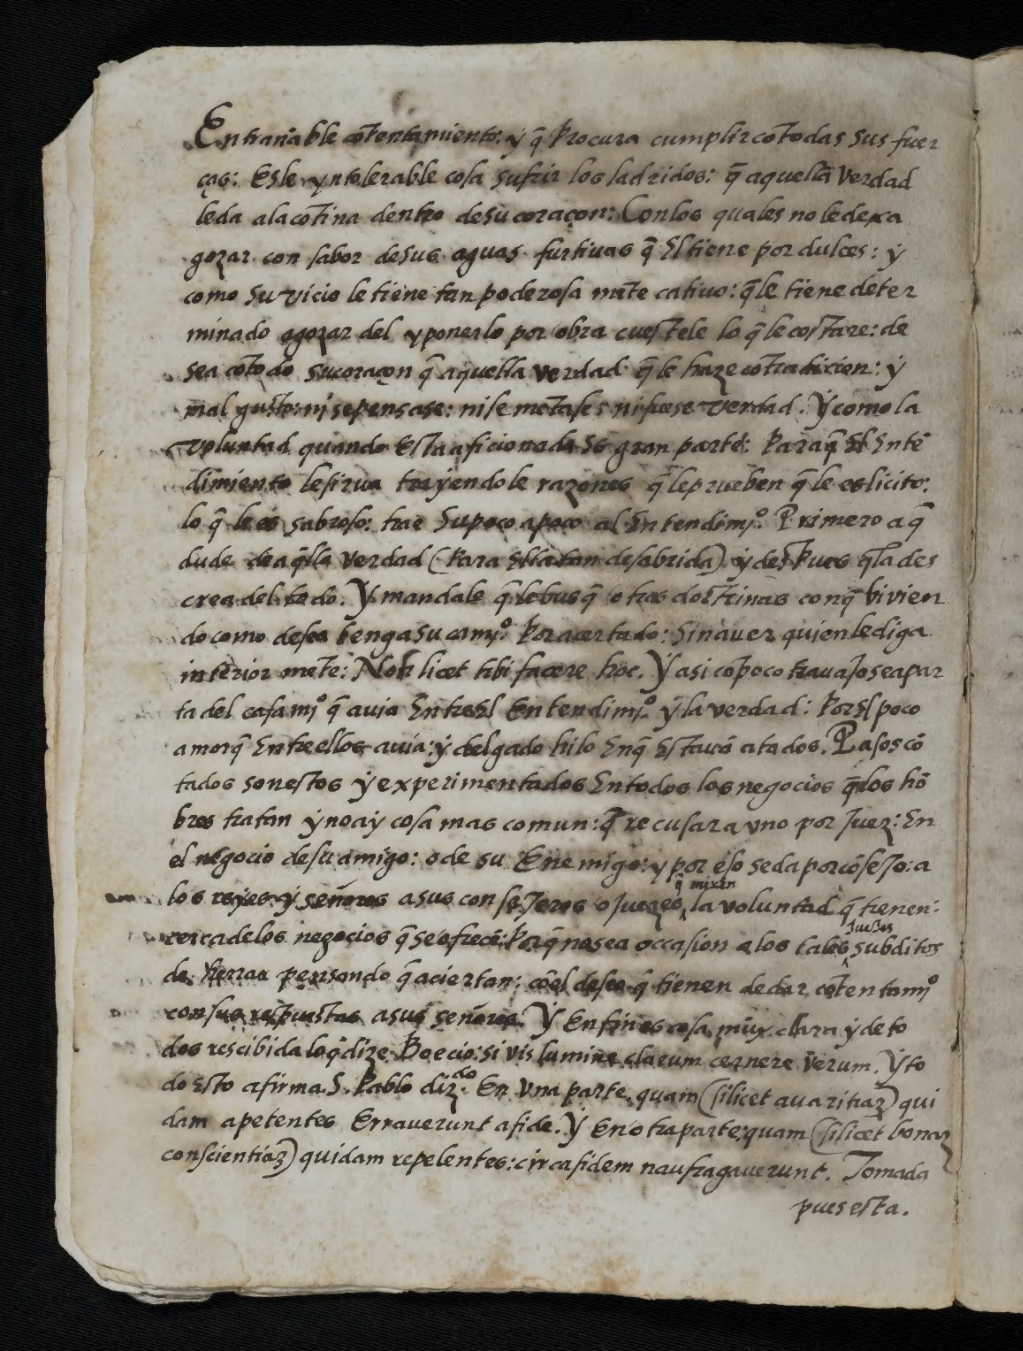 Entrañable cōtentamiento: y q̄ Procura cumplir cō todas sus fuer
ças: Esle yntolerable cosa sufrir los ladridos: q̄ aquella Verdad
le da ala cōtina dentro de su coraçon: Con los quales no le dexa
gozar con sabor de sus aguas furtiuas q̄ El tiene por dulces: y
como su vicio le tiene tan poderosa mēte catiuo: q̄ le tiene deter
minado a gozar del y ponerlo por obra cuestele lo q̄ le costare: de
sea cō todo su coraçon q̄ aquella verdad q̄ le haze cōtradicion: y
mal gusto: ni se pensase: ni se mētase: ni fuese Verdad. Y como la
Voluntad quando Esta aficionada Es gran parte: Para q̄ El Entē
dimiento le sirua trayendole razones q̄ le prueben q̄ le es licito:
lo q̄ le es sabroso: trae Su poco a poco al Entendimjº. Primero a q̄
dude de aq̄lla verdad (Para Ella tan desabrida) y desPues q̄ la des
crea del todo. Y mandale q̄ le busq̄ otras doctrinas con q̄ bivien
do como desea benga su camjº Por acertado: Sin auer quien le diga
interior mēte: Non licet tibi facere hoc. Y asi cō poco trauajo se apar
ta del casamjº q̄ auia Entre El Entendimjº y la verdad: Por El poco
amor q̄ Entre ellos auia: y delgado hilo En q̄ Estauā atados. Pasos cō
tados son estos y experimentados En todos los negocios q̄ los hō
bres tratan y no ay cosa mas comun: q̄ recusar a vno por Juez: En
el negocio de su amigo: o de su Enemigo: y por eso se da por cōsejo: a
los reyes y señores a sus consejeros o juezes q̄ miren la voluntad q̄ tienen:
cerca de los negocios q̄ se ofrecē: Porq̄ no sea occasion a los tales Juezes subditos
de herrar pensando q̄ aciertan: cō el deseo q̄ tienen de dar cōtentamjº
con sus respuestas a sus señores. Y En fin es cosa muy clara y de to
dos rescibida lo q̄ dize Boecio: si vis lumine claro cernere verum. Y to
do Esto afirma S. Pablo dizdo En Vna parte quam (silicet auaritiaz) qui
dam apetentes Errauerunt a fide. Y En otra parte: quam (silicet bonaz
conscientiaz) quidam repelentes: circa fidem naufragauerunt. Tomada
pues esta.